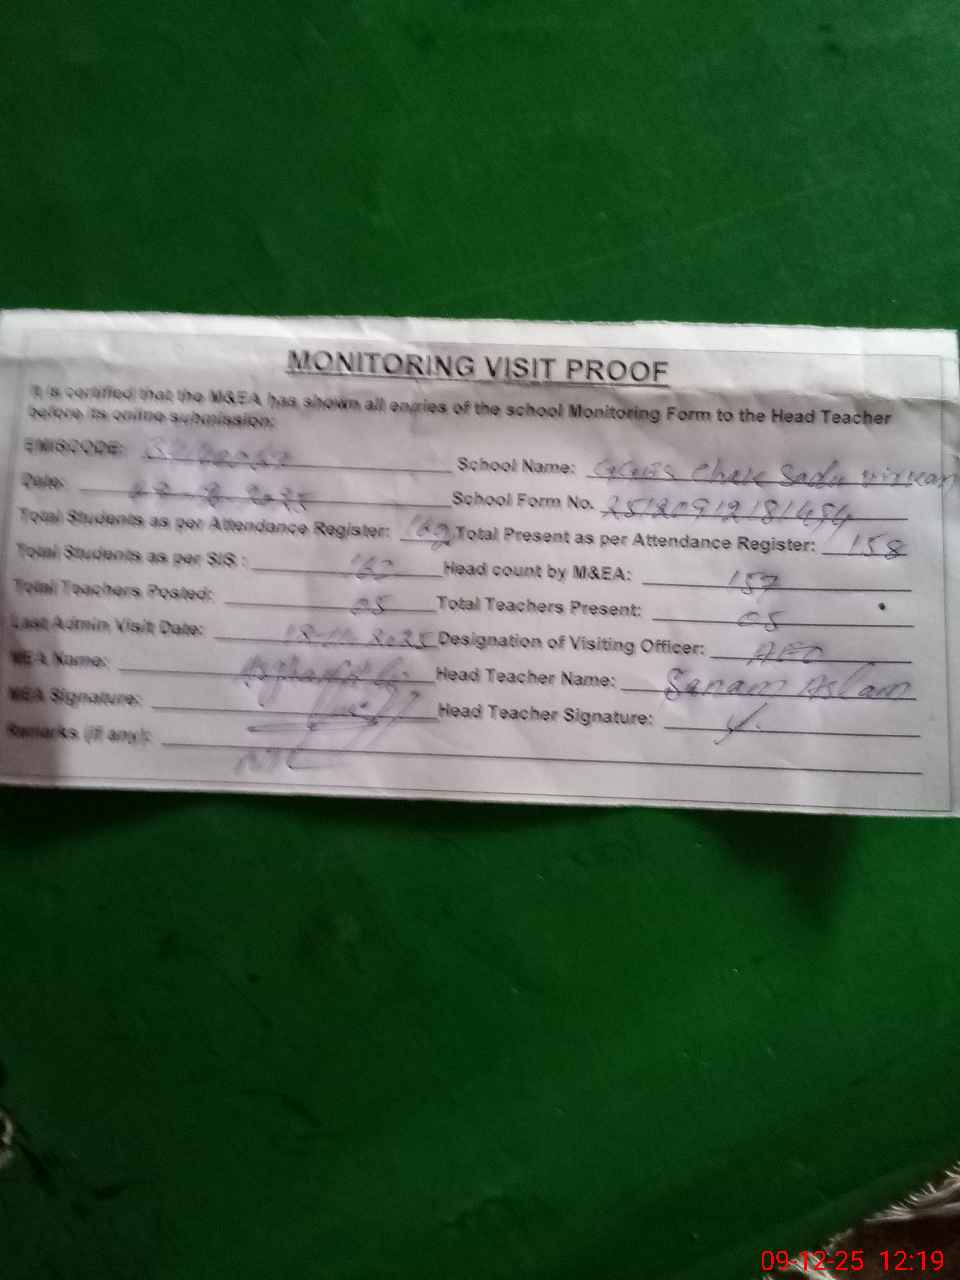 MONITORING VISIT PROOF
It is certified that the M&EA has shown all entries of the school Monitoring Form to the Head Teacher
before its online submission:
EMISCODE: School Name: Chak Sadu
Date: 2025 School Form No. 25120912181454
Total Students as per Attendance Register: Total Present as per Attendance Register: 158
Total Students as per SIS.: Head count by M&EA: 157
Total Teachers Posted: 05 Total Teachers Present: 05
Last Admin Visit Date: 18-11-2025 Designation of Visiting Officer: AEO
MEA Name: Head Teacher Name: Sanam Aslam
MEA Signature: Head Teacher Signature:
Remarks (if any):
09-12-25 12:19